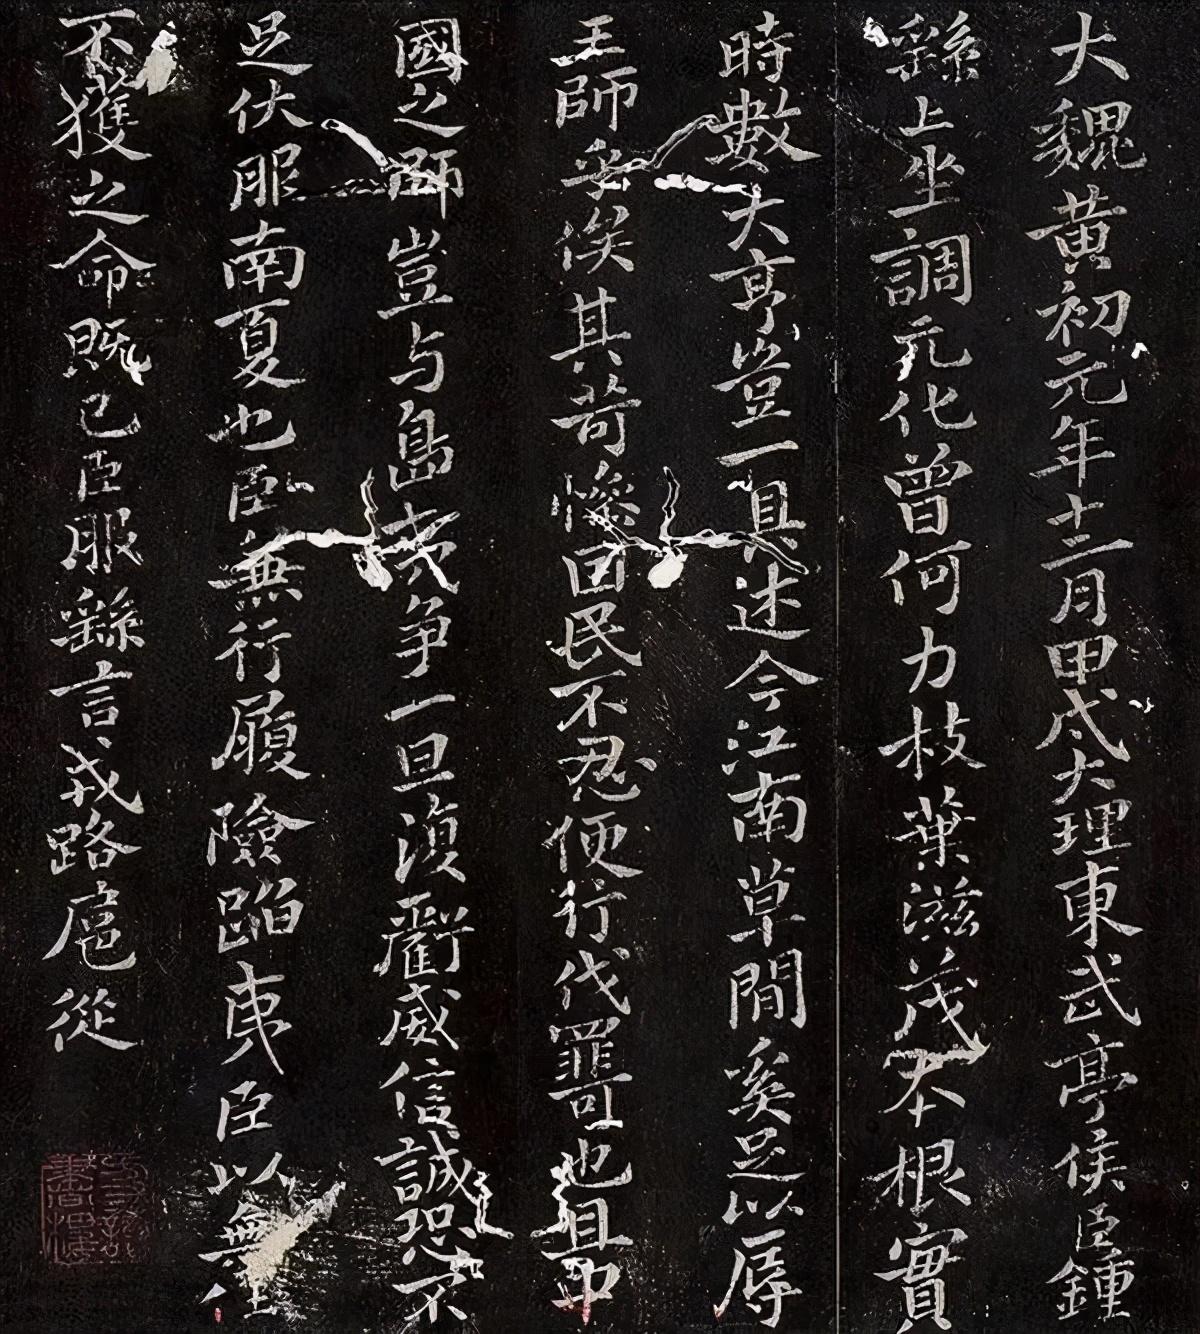 大魏黃初元年十二月甲戌大理東武亭侯臣鍾
繇上坐調元化曾何力枝葉滋茂本根實
時數大亨豈一具述今江南草間奚足以辱
王師乎俟其苛慘困民不忍便行伐罪可也且中
國之師豈与島夷爭一旦復虧威信誠恐不
足伏服南夏也臣無行履險蹈夷臣以無
不獲之命既已臣服繇言戎路扈從